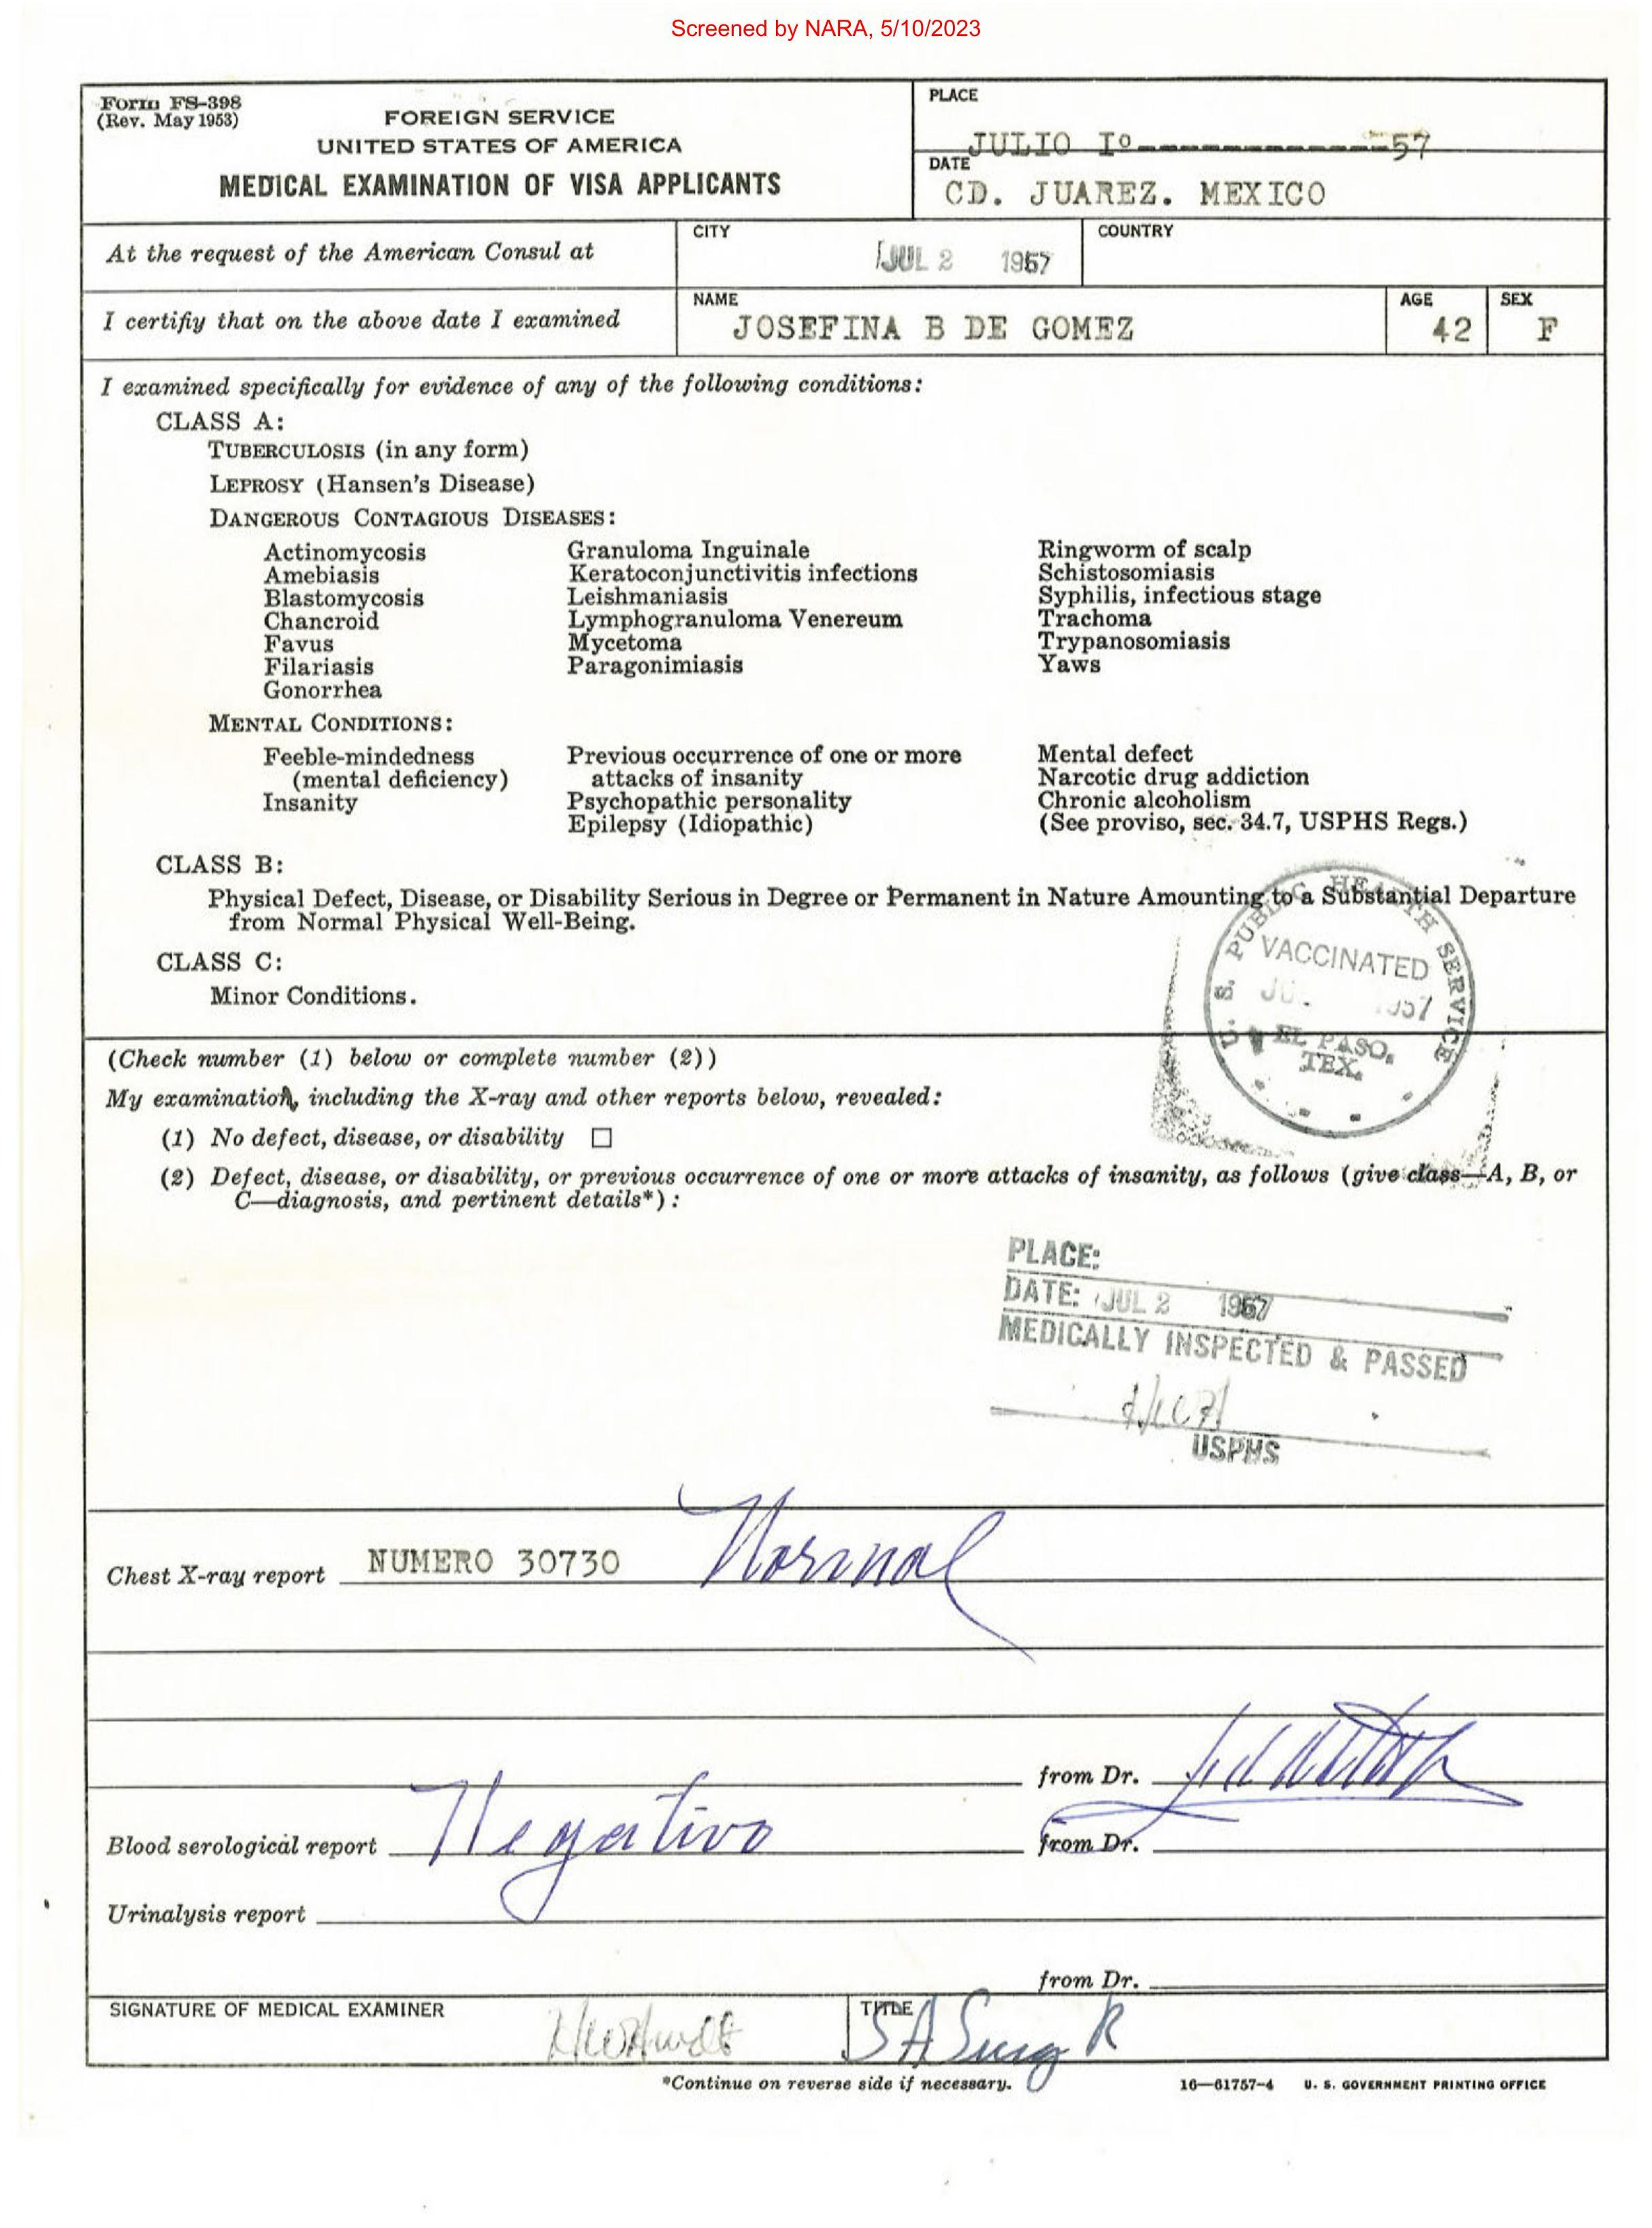 Screened by NARA, 5/10/2023
Form FS-398
(Rev. May 1953)
FOREIGN SERVICE
UNITED STATES OF AMERICA
MEDICAL EXAMINATION OF VISA APPLICANTS
PLACE
JULIO Iº--------------57
DATE
CD. JUAREZ. MEXICO
At the request of the American Consul at
CITY
JUL 2 1957
COUNTRY
I certify that on the above date I examined
NAME
JOSEFINA B DE GOMEZ
AGE
42
SEX
F
I examined specifically for evidence of any of the following conditions:
CLASS A:
TUBERCULOSIS (in any form)
LEPROSY (Hansen's Disease)
DANGEROUS CONTAGIOUS DISEASES:
Actinomycosis
Amebiasis
Blastomycosis
Chancroid
Favus
Filariasis
Gonorrhea
Granuloma Inguinale
Keratoconjunctivitis infections
Leishmaniasis
Lymphogranuloma Venereum
Mycetoma
Paragonimiasis
Ringworm of scalp
Schistosomiasis
Syphilis, infectious stage
Trachoma
Trypanosomiasis
Yaws
MENTAL CONDITIONS:
Feeble-mindedness
(mental deficiency)
Insanity
Previous occurrence of one or more
attacks of insanity
Psychopathic personality
Epilepsy (Idiopathic)
Mental defect
Narcotic drug addiction
Chronic alcoholism
(See proviso, sec. 34.7, USPHS Regs.)
CLASS B:
Physical Defect, Disease, or Disability Serious in Degree or Permanent in Nature Amounting to a Substantial Departure
from Normal Physical Well-Being.
CLASS C:
Minor Conditions.
U. S. PUBLIC HEALTH SERVICE
VACCINATED
EL PASO,
TEX.
(Check number (1) below or complete number (2))
My examination, including the X-ray and other reports below, revealed:
(1) No defect, disease, or disability ☐
(2) Defect, disease, or disability, or previous occurrence of one or more attacks of insanity, as follows (give class—A, B, or
C—diagnosis, and pertinent details*):
PLACE:
DATE: JUL 2 1957
MEDICALLY INSPECTED & PASSED
USPHS
Chest X-ray report NUMERO 30730 Normal
from Dr.
Blood serological report Negativo from Dr.
Urinalysis report
from Dr.
SIGNATURE OF MEDICAL EXAMINER
TITLE
S A Surg R
*Continue on reverse side if necessary.
16—61757-4 U. S. GOVERNMENT PRINTING OFFICE